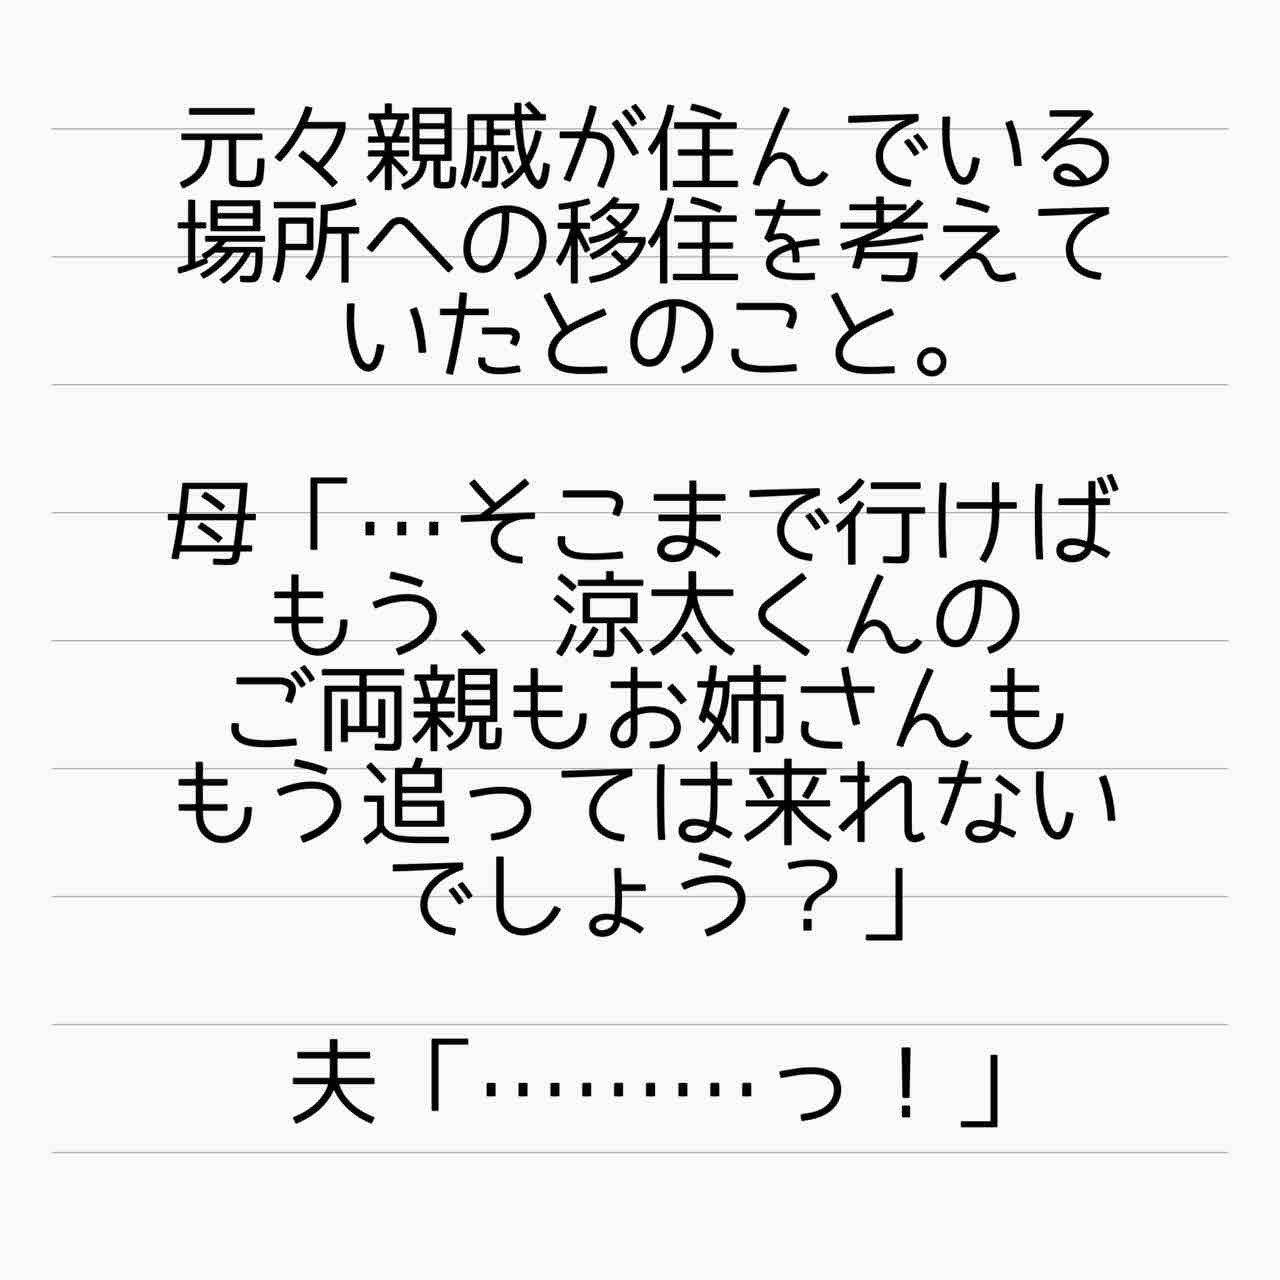 元々親戚が住んでいる
場所への移住を考えて
いたとのこと。
母「…そこまで行けば
もう、涼太くんの
ご両親もお姉さんも
もう追っては来れない
でしょう？」
夫「………っ！」